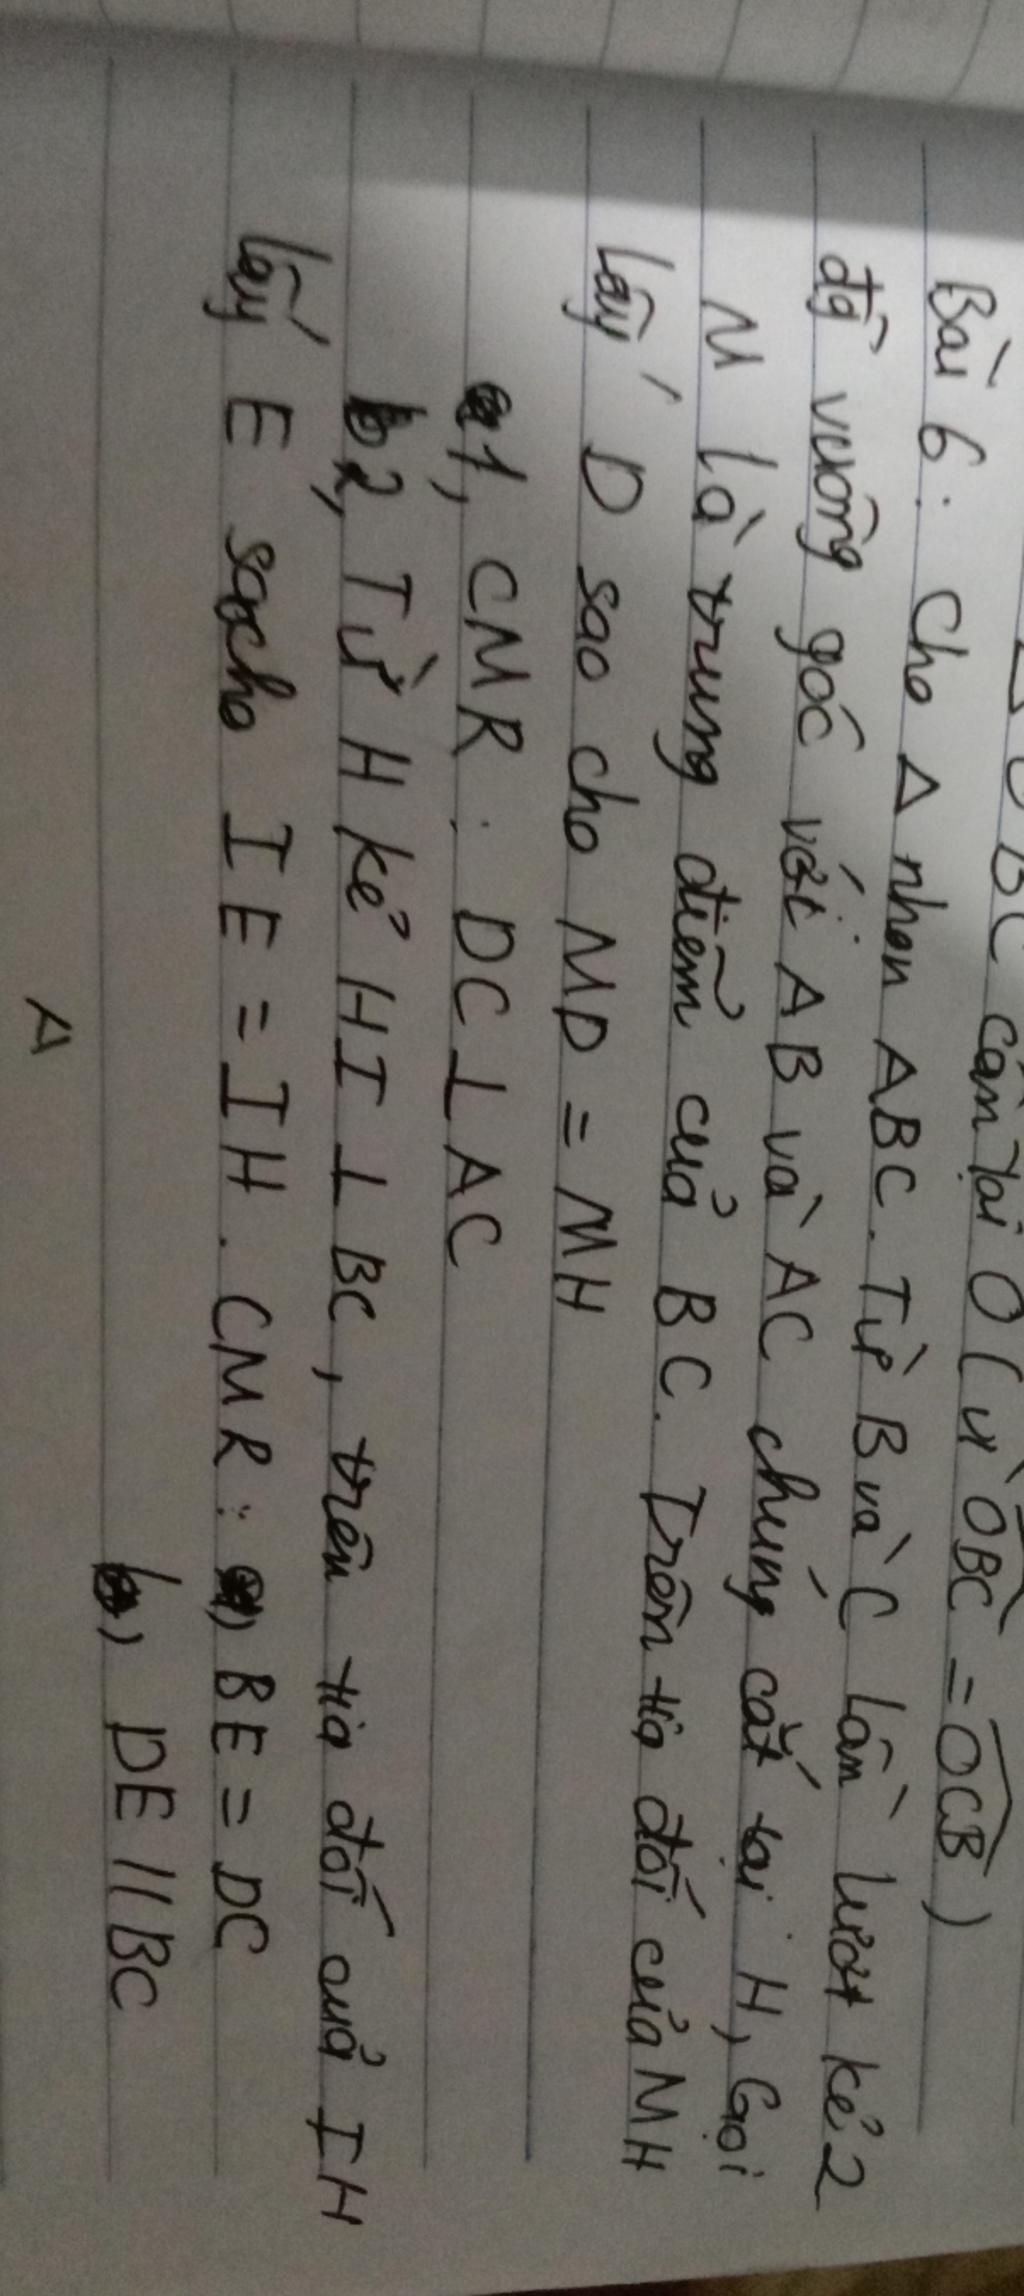 BC cân tại O (vì OBC = OCB)
Bài 6: Cho Δ nhọn ABC. Từ B và C lần lượt kẻ 2
đg vuông góc với AB và AC chúng cắt tại H, Gọi
M là trung điểm của BC. Trên tia đối của MH
lấy D sao cho MD = MH
1, CMR: DC ⊥ AC
2, Từ H kẻ HI ⊥ BC, trên tia đối của IH
lấy E sacho IE = IH. CMR: a) BE = DC
b) DE // BC
A